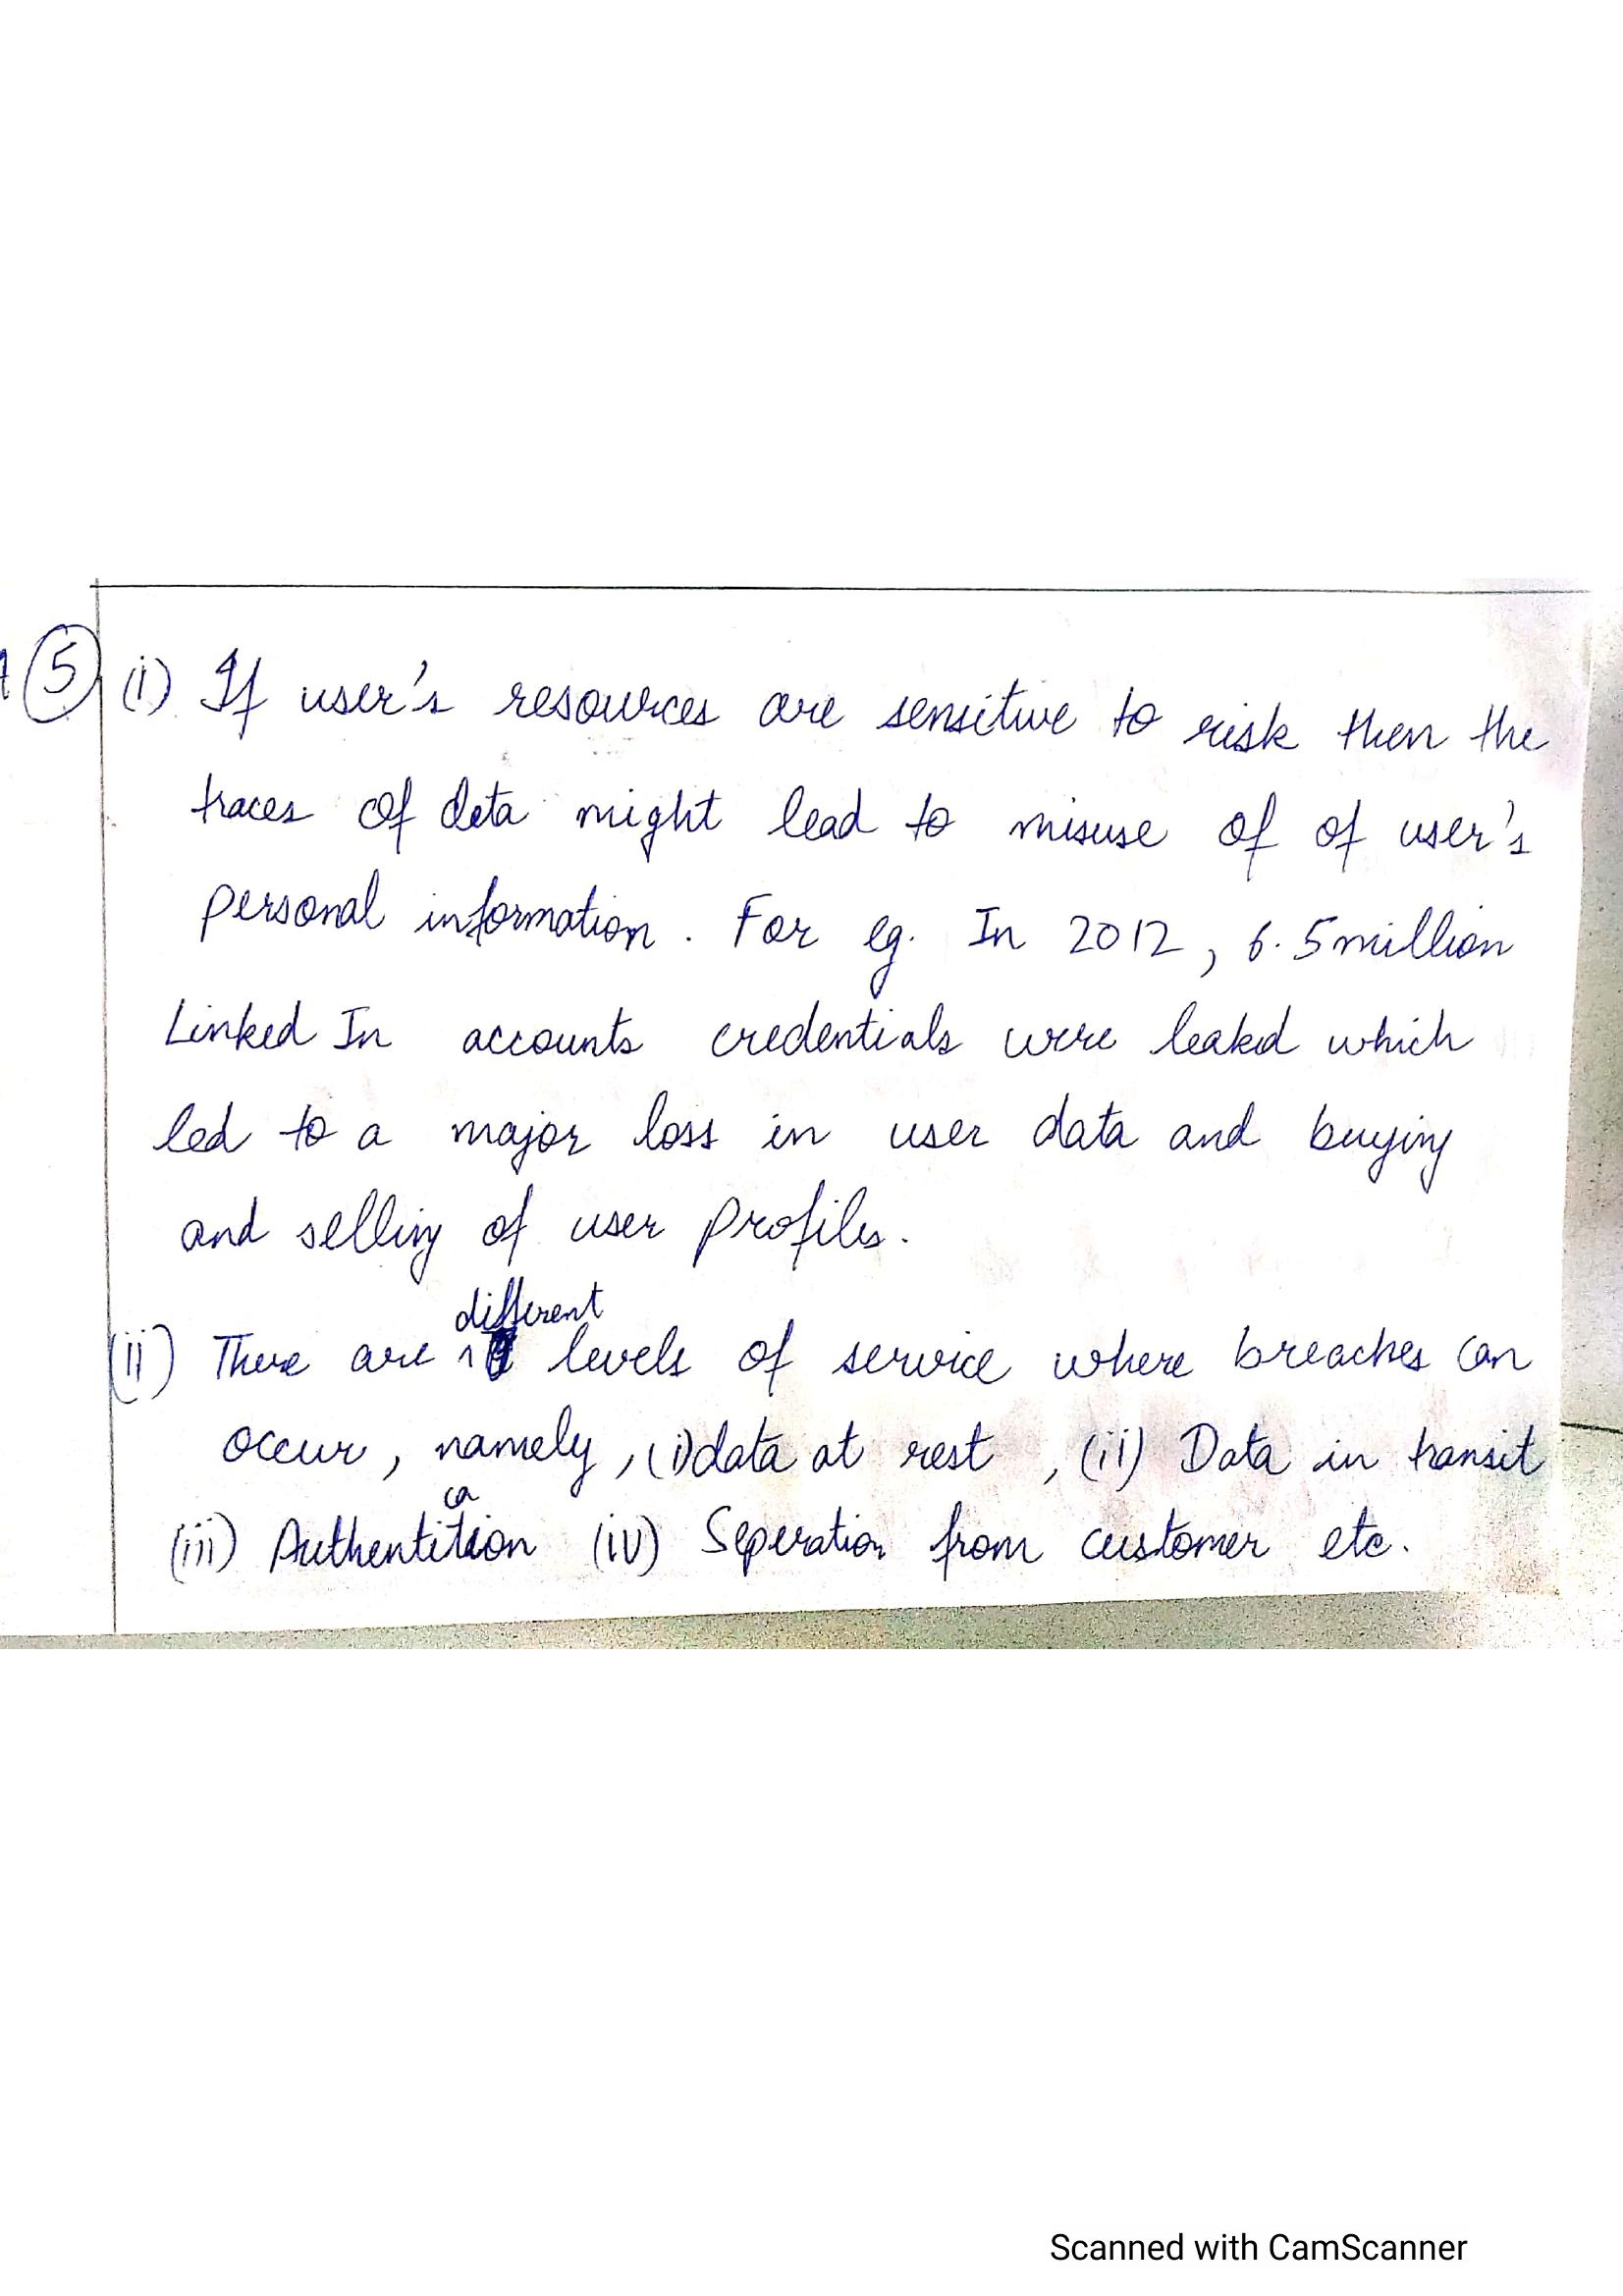 5 (i) If user's resources are sensitive to risk then the
traces of data might lead to misuse of of user's
personal information. For eg. In 2012, 6.5 million
Linked In accounts credentials were leaked which
led to a major loss in user data and buying
and selling of user profiles.
(ii) There are different levels of service where breaches can
occur, namely, (i) data at rest, (ii) Data in transit
(iii) Authentication (iv) Seperation from customer etc.
Scanned with CamScanner